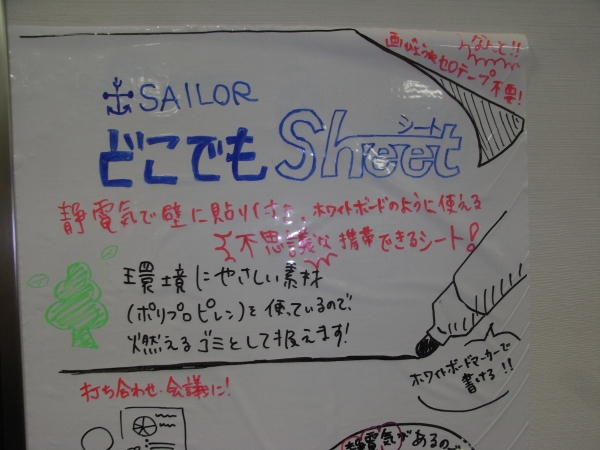 なんと!!
画びょうやセロテープ不要!
SAILOR
シート
どこでもSheet
静電気で壁に貼り付き、ホワイトボードのように使える
不思議な携帯できるシート!
環境にやさしい素材
(ポリプロピレン)を使っているので、
燃えるゴミとして扱えます!
ホワイトボードマーカーで
書ける!!
打ち合わせ・会議に!
静電気があるので